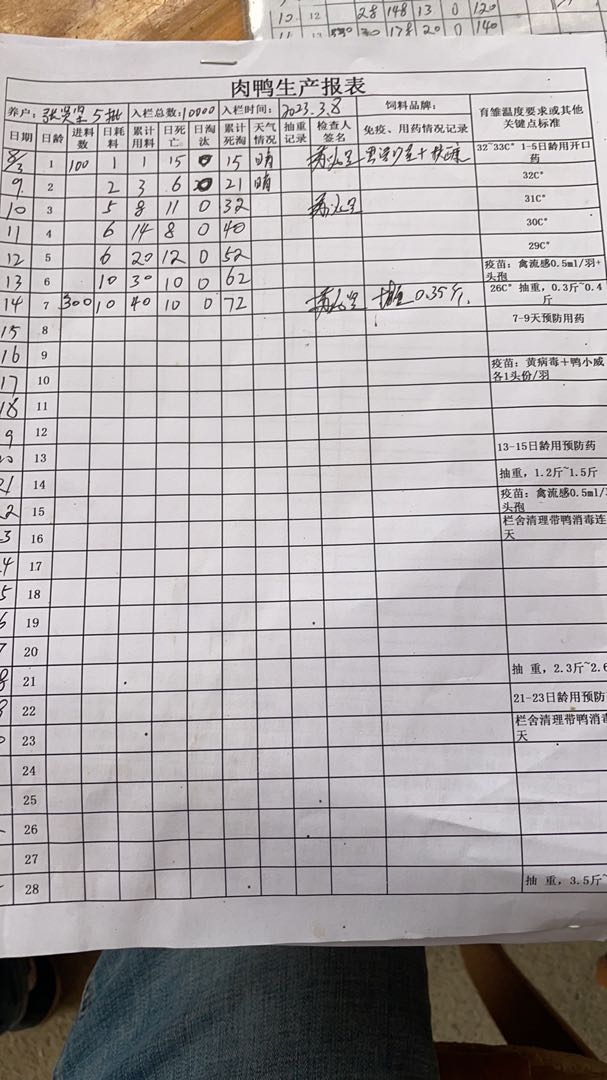 10 12 28 148 13 0 120
178 20 0 140
肉鸭生产报表
养户: 5批 入栏总数:10000 入栏时间: 2023.3.8 饲料品牌: 育雏温度要求或其他关键点标准
日期 日龄 进料数 日耗料 累计用料 日死亡 日淘汰 累计死淘 天气情况 抽重记录 检查人签名 免疫、用药情况记录
8/3 1 100 1 1 15 0 15 晴 32~33C° 1-5日龄用开口药
9 2 2 3 6 0 21 晴 32C°
10 3 5 8 11 0 32 31C°
11 4 6 14 8 0 40 30C°
12 5 6 20 12 0 52 29C°
13 6 10 30 10 0 62 疫苗：禽流感0.5ml/羽+头孢
14 7 300 10 40 10 0 72 0.35斤. 26C° 抽重，0.3斤~0.4斤
15 8 7-9天预防用药
16 9
17 10 疫苗：黄病毒＋鸭小威各1头份/羽
18 11
9 12
20 13 13-15日龄用预防药
21 14 抽重，1.2斤~1.5斤
2 15 疫苗：禽流感0.5ml/ 头孢
3 16 栏舍清理带鸭消毒连 天
4 17
5 18
6 19
7 20
8 21 抽 重，2.3斤~2.6
22 21-23日龄用预防
23 栏舍清理带鸭消毒 天
24
25
26
27
28 抽 重，3.5斤~